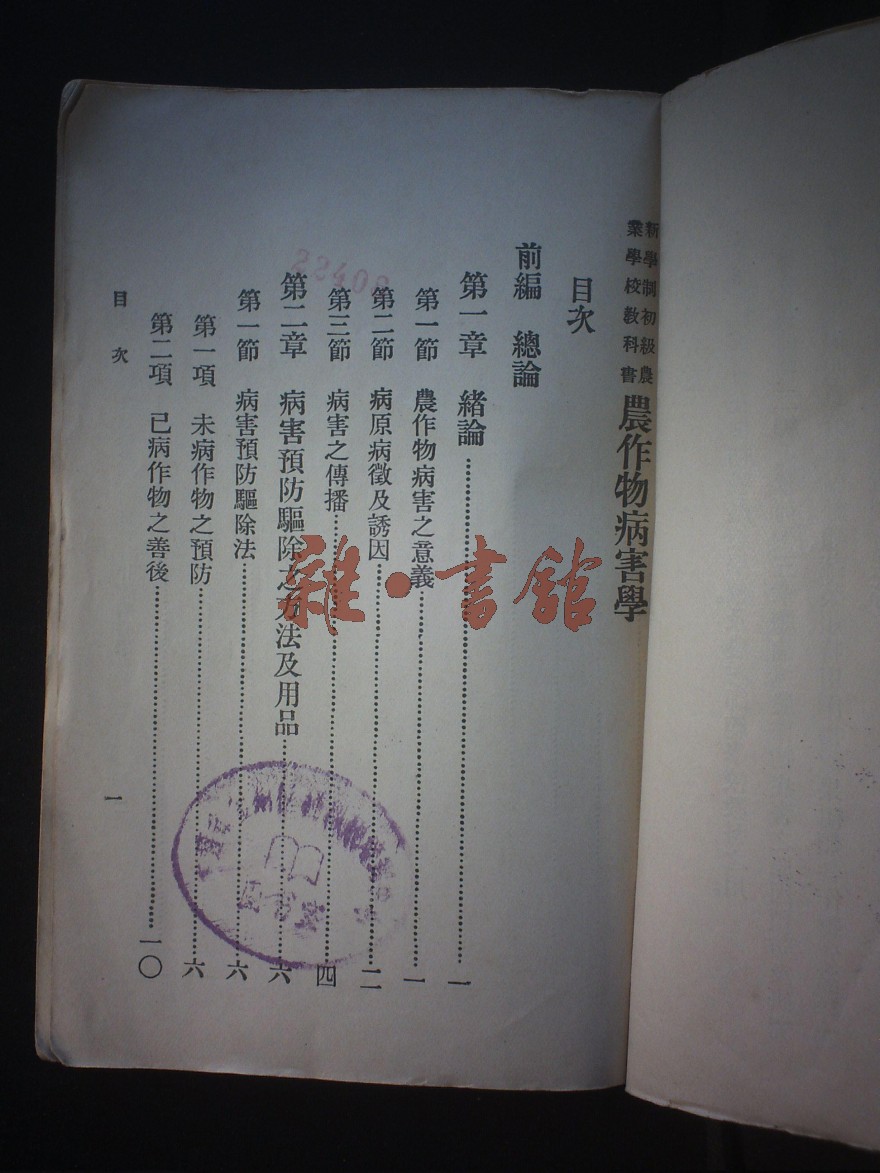 新學制初級農
業學校教科書
農作物病害學
目次
前編　總論
第一章　緒論……一
第一節　農作物病害之意義……一
第二節　病原病徵及誘因……二
第三節　病害之傳播……四
第二章　病害預防驅除之方法及用品……六
第一節　病害預防驅除法……六
第一項　未病作物之預防……六
第二項　已病作物之善後……一〇
目次
一
雜·書館